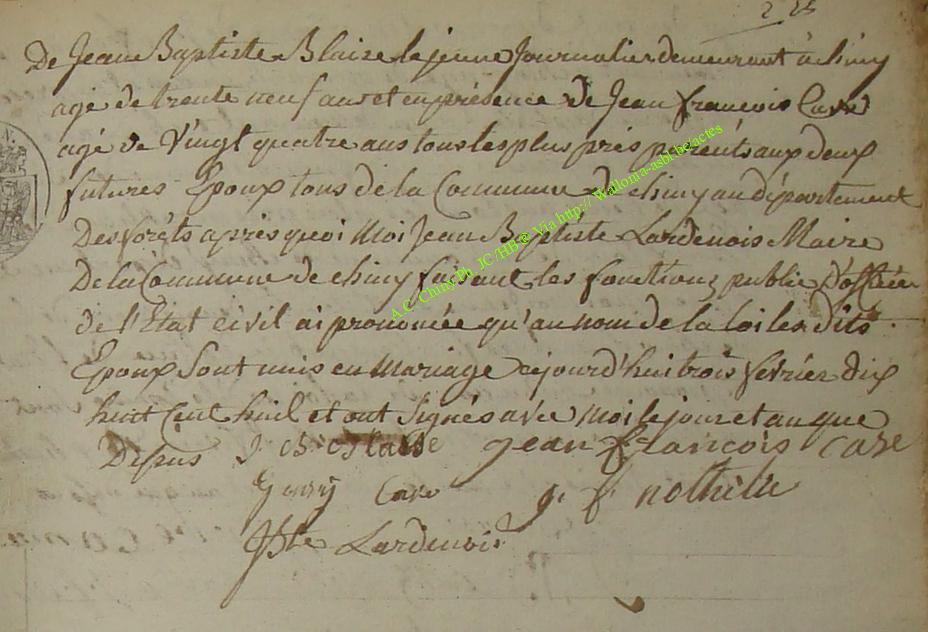 2 25
De Jean Baptiste Blaise le jeune Journalier demeurant à chiny
agé de trente neuf ans et en présence de Jean françois Care
agé de Vingt quatre ans tous les plus près parents aux deux
futures Epoux tous de la Commune de chiny au département
Des forêts après quoi Moi Jean Baptiste Lardenois Maire
De la Commune de chiny faisant les fonctions public D'officier
de l'Etat civil ai prononcée qu'au nom de la loi les dits
Epoux Sont unis en Mariage cejourd'hui trois fevrier dix
huit Cent huit et ont Signés avec moi le jour et an que
Dessus J B Blaise Jean François Care
Care j. f nothein
JBte Lardenois
A.C. Chiny Ph. JC /HB @ Via http:// Wallonia-asbl.be/actes